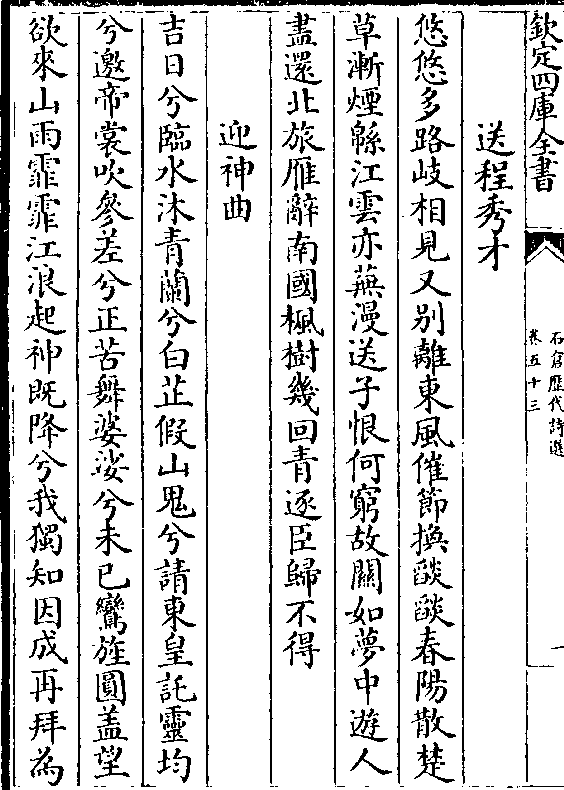 欽定四庫全書
石倉歷代詩選
卷五十三
一
送程秀才
悠悠多路岐相見又别離東風催節換燄燄春陽散楚
草漸煙緜江雲亦蕪漫送子恨何窮故關如夢中遊人
盡還北旅雁辭南國楓樹幾回青逐臣歸不得
迎神曲
吉日兮臨水沐青蘭兮白芷假山鬼兮請東皇託靈均
兮邀帝裳吹參差兮正苦舞婆娑兮未已鸞旌圓盖望
欲來山雨霏霏江浪起神既降兮我獨知因成再拜為